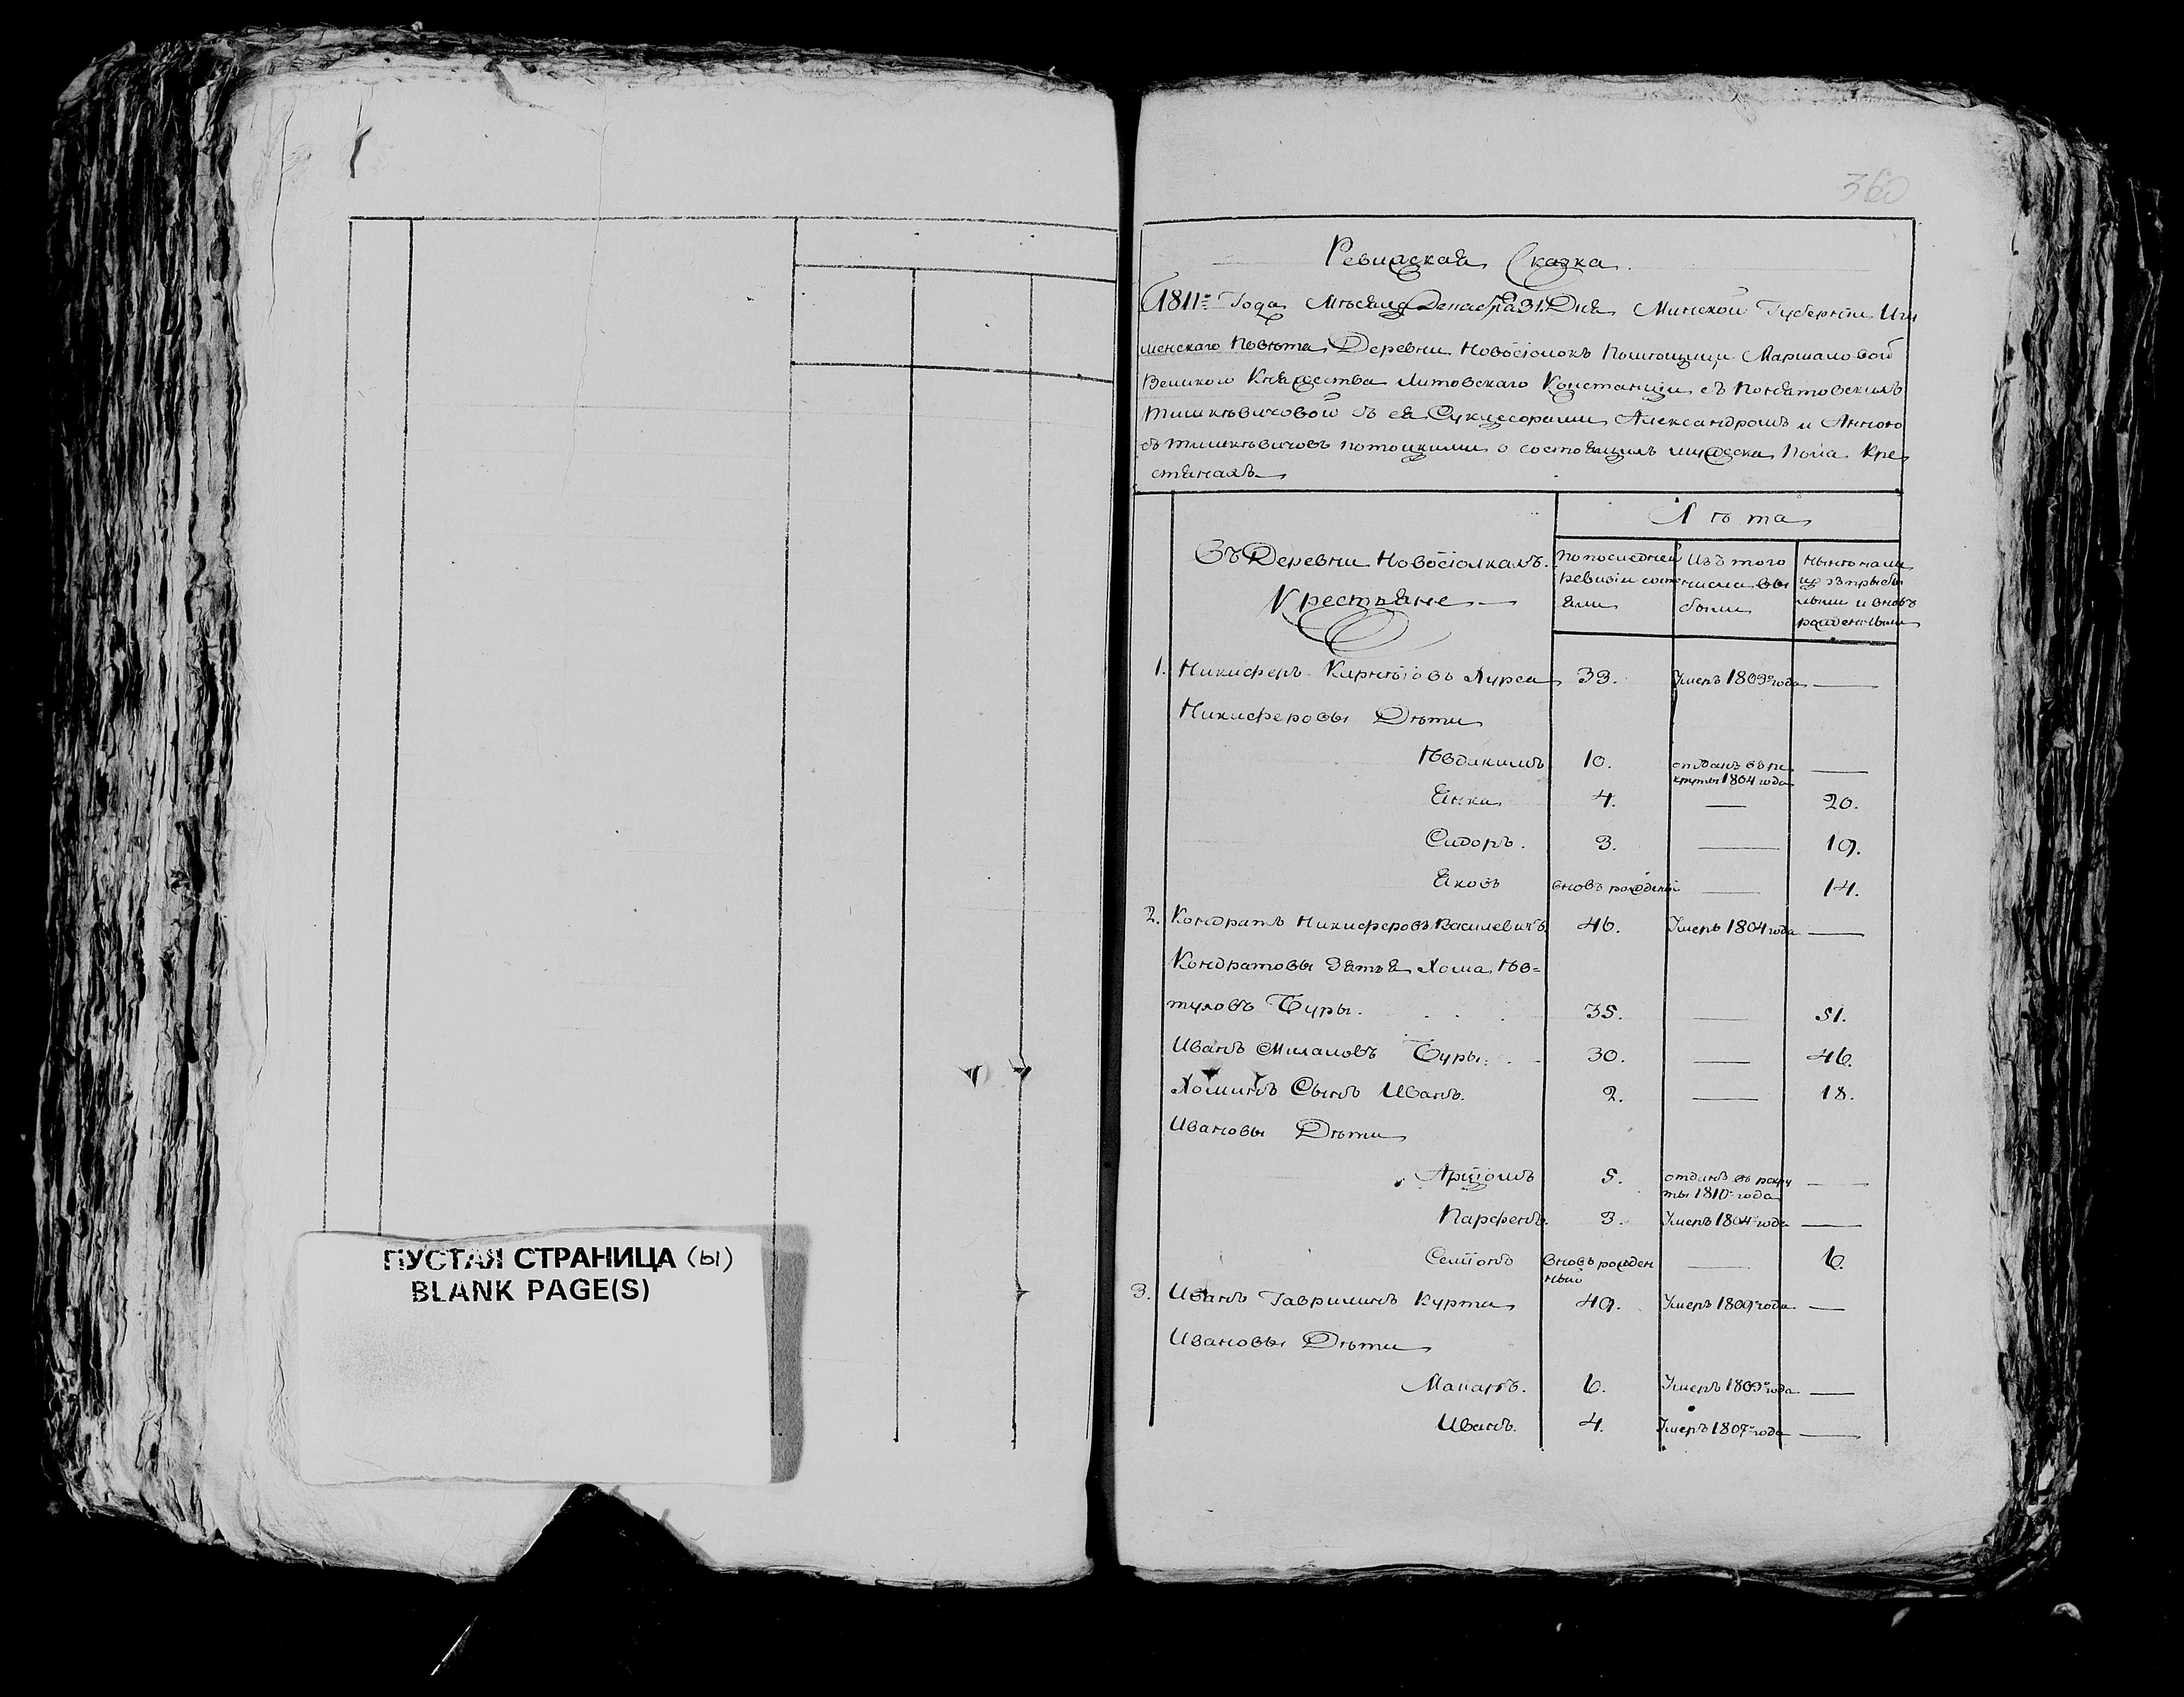 ПУСТАЯ СТРАНИЦА (ы)
BLANK PAGE(S)
360
Ревизская Сказка.
1811го Года Мѣсяца Декабря 31 Дня Минской Губерніи Игу
менскаго Повѣта Деревни Новосіолокъ Помѣщицы Маршаловой
Великого Княжества Литовскаго Констанціи съ Понятовскихъ
Тишкѣвичовой съ ея Сукцессорами Александромъ и Анною
съ Тишкѣвичовъ Потоцкими о состоящихъ мужеска Пола Кре
стянахъ
Лѣта
Въ Деревни Новосіолкахъ.
Крестьяне
По последней
ревизіи сост
яли
Изъ того
числа вы
были
Нынѣ на ли
цо съ прыбы
лыми и вновь
рожденными
1. Никиферъ Карнѣіовъ Лурса 33. Умеръ 1809го года —
Никиферовы Дѣти
Ѣвдакимъ 10. отданъ въ ре
круты 1804 года —
Янка 4. — 20.
Сидоръ. 3. — 19.
Яковъ вновь рожденый — 14.
2. Кондратъ Никиферовъ Василевичъ 46. Умеръ 1804 года —
Кондратовы Зятья Хома Ѣв=
туховъ Буры. 35. — 51.
Иванъ Михаловъ Буры. 30. — 46.
Хоминъ Сынъ Иванъ. 2. — 18.
Ивановы Дѣти
Арціомъ 5. отданъ въ рекру
ты 1810го года —
Парфенъ. 3. Умеръ 1804го года —
Семіонъ вновь рожден
ный — 6.
3. Иванъ Гаврилинъ Курта 49. Умеръ 1809 года —
Ивановы Дѣти
Макаръ. 6. Умеръ 1809го года —
Иванъ. 4. Умеръ 1807го года —